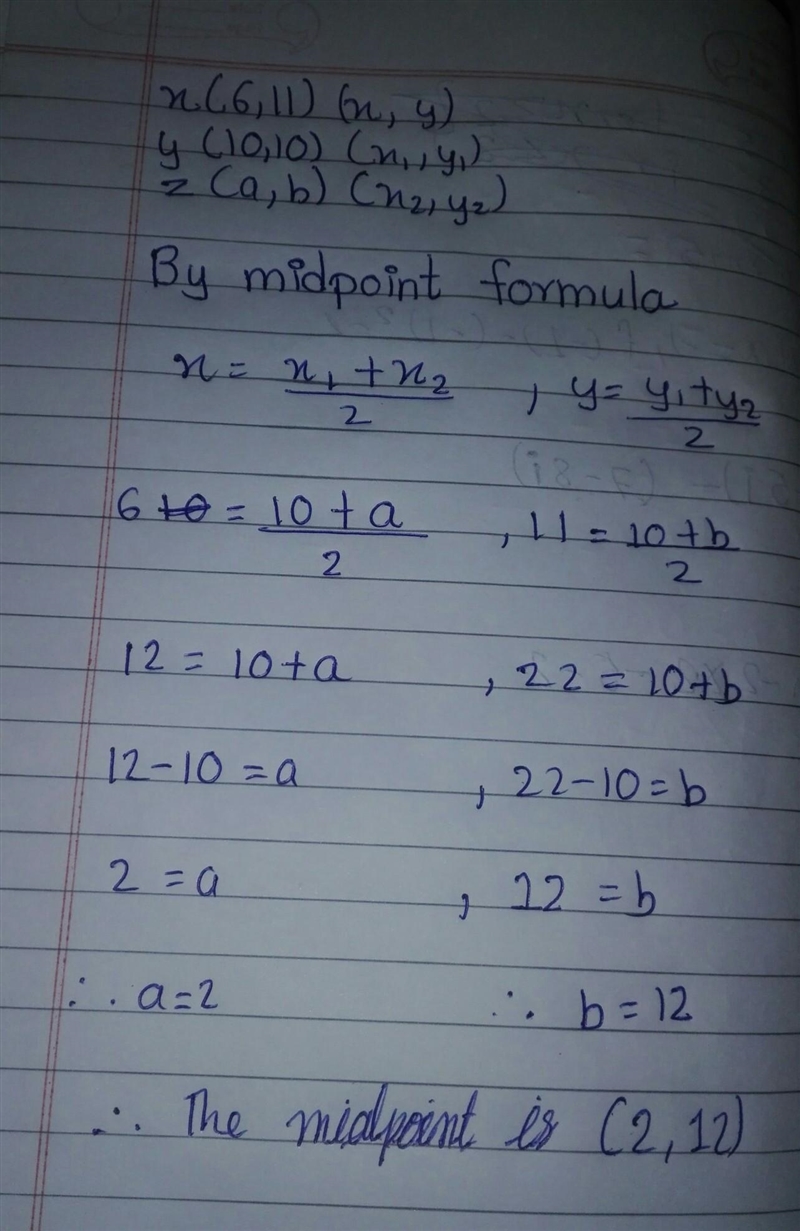 x (6,11) (x, y)
y (10,10) (x₁, y₁)
z (a, b) (x₂, y₂)
By midpoint formula
x = x₁ + x₂ / 2 , y = y₁ + y₂ / 2
6 = 10 + a / 2 , 11 = 10 + b / 2
12 = 10 + a , 22 = 10 + b
12 - 10 = a , 22 - 10 = b
2 = a , 12 = b
∴ a = 2 ∴ b = 12
∴ The midpoint is (2, 12)